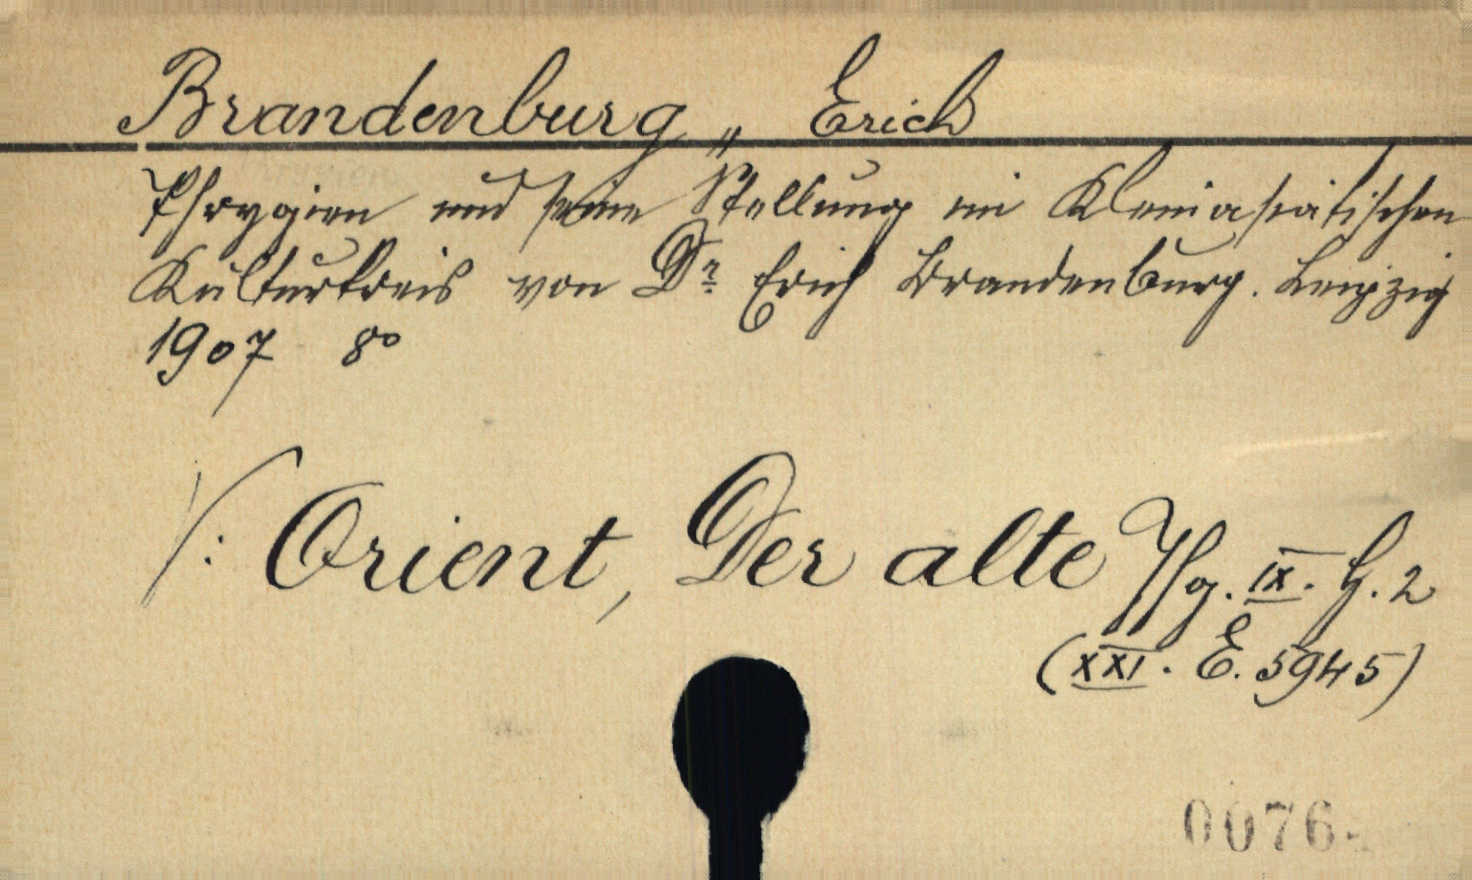 Brandenburg, Erich
Phrygien und seine Stellung im Kleinasiatischen
Kulturkreis von Dr. Erich Brandenburg. Leipzig
1907 8°
/: Orient, Der alte Jhg. IX. H. 2
(XXI. E. 5945)
0076